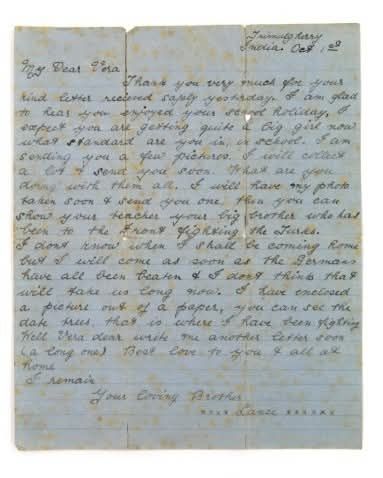 Trimulgherry
India. Oct 1st
My Dear Vera
Thank you very much for your
kind letter recieved safely yesterday. I am glad
to hear you enjoyed your school holiday, I
expect you are getting quite a big girl now
what standard are you in, in school. I am
sending you a few pictures. I will collect
a lot & send you soon. What are you
doing with them all. I will have my photo
taken soon & send you one, then you can
show your teacher your big brother who has
been to the Front fighting the Turks.
I dont know when I shall be coming home
but I will come as soon as the Germans
have all been beaten & I dont think that
will take us long now. I have enclosed
a picture out of a paper, you can see the
date trees, that is where I have been fighting
Well Vera dear write me another letter soon
(a long one) Best love to you & all at
Home
I remain
Your Loving Brother
Lance